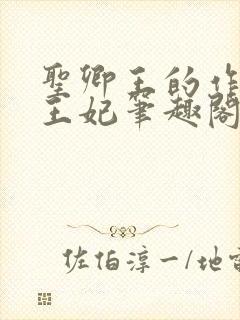 聖卿王的作
王妃筆趣閣
佐伯淳一/地雷